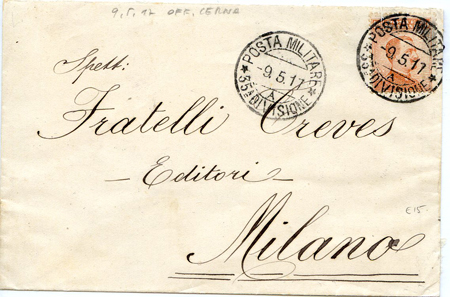 9.5.17 OFF. CERNE
POSTA MILITARE
9.5.17
A
35ª DIVISIONE
POSTA MILITARE
9.5.17
A
35ª DIVISIONE
Spett:
Fratelli Treves
- Editori -
€15
Milano